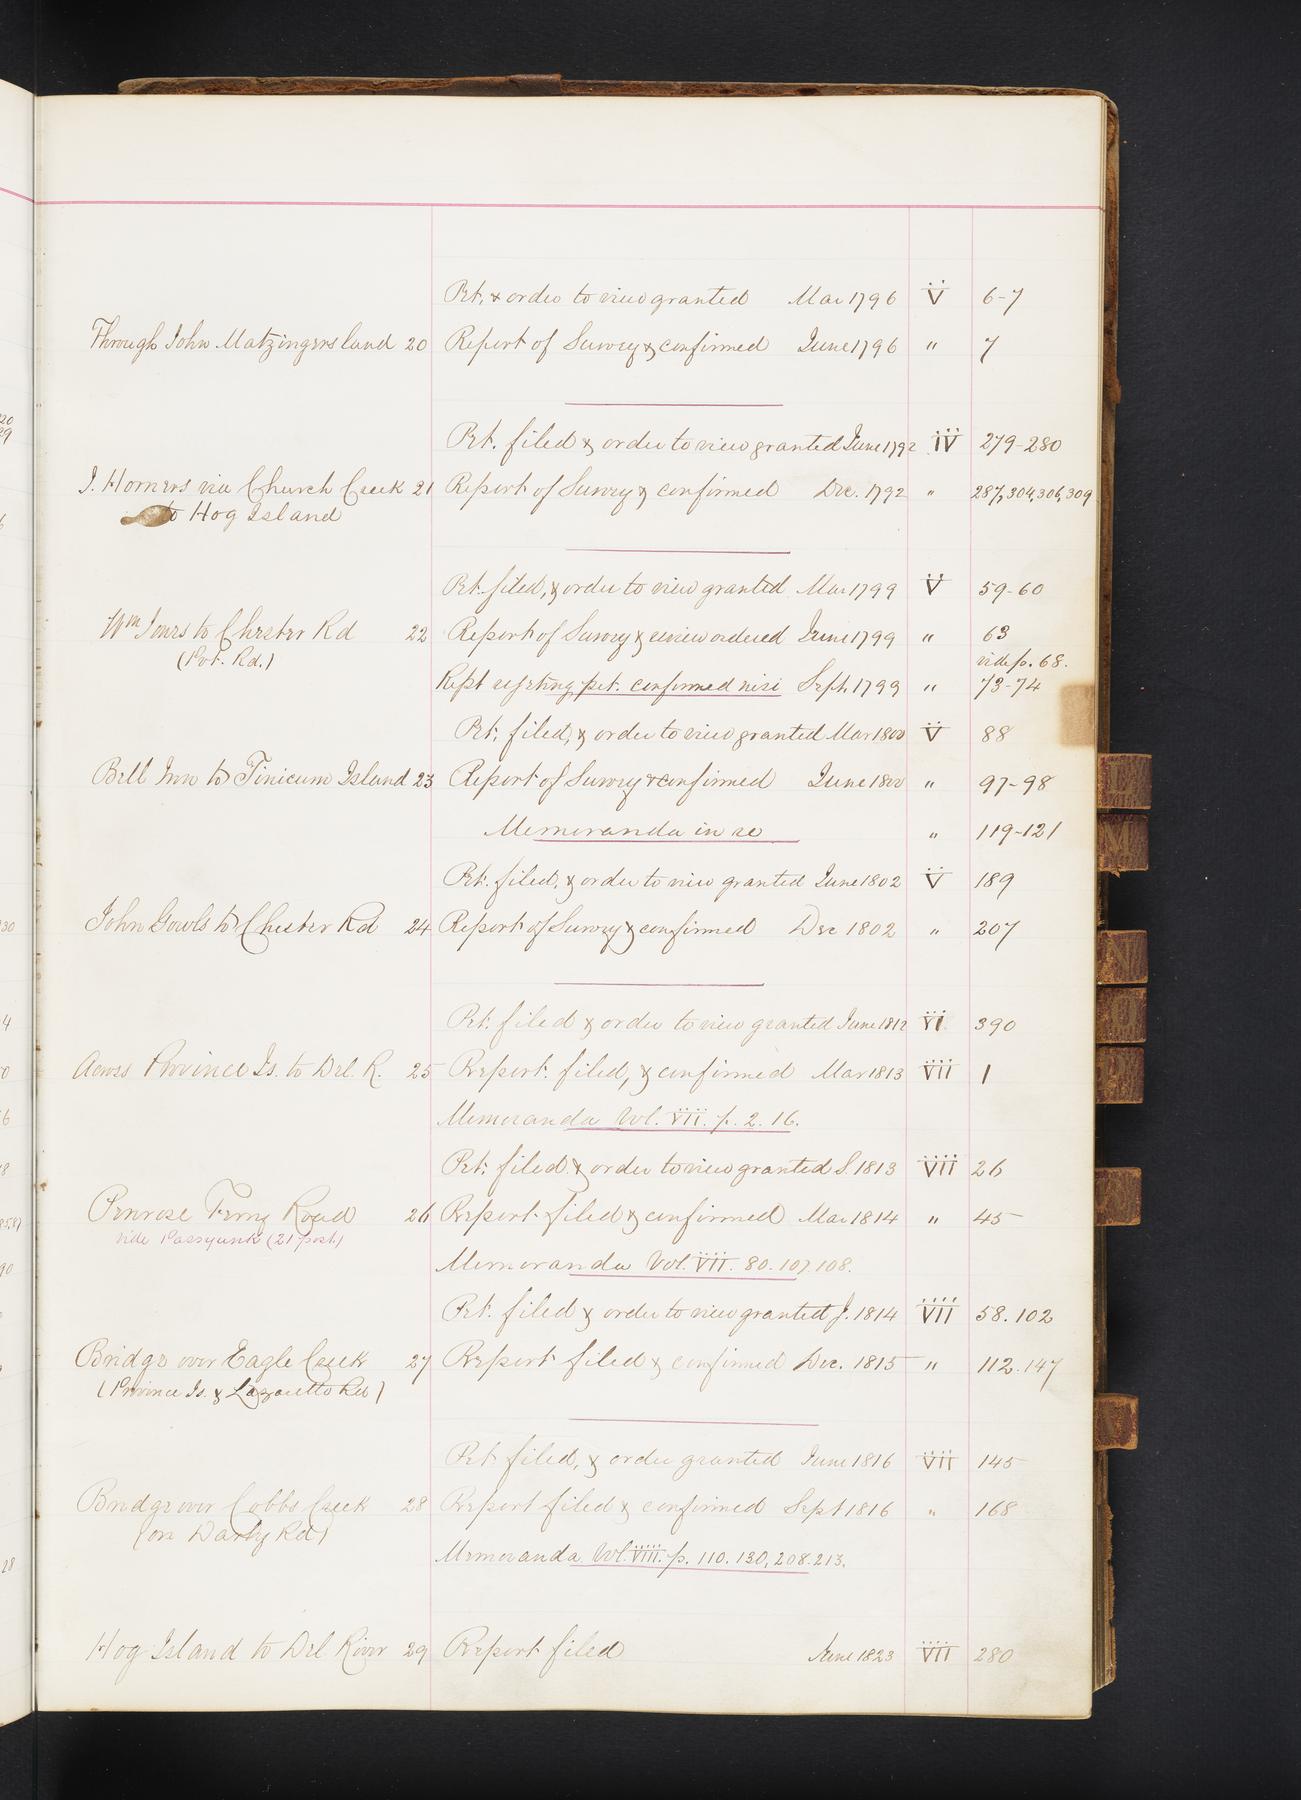 Pet. & order to view granted Mar 1796 V 6-7
Through John Matzingers land 20 Report of Survey & confirmed June 1796 " 7
Pet. filed & order to view granted June 1792 IV 279-280
J. Horners via Church Creek 21 Report of Survey & confirmed Dec. 1792 " 287, 304, 306, 309
to Hog Island
Pet. filed, & order to view granted Mar 1799 V 59-60
Wm Jones to Chester Rd 22 Report of Survey & review ordered June 1799 " 63
(Pvt. Rd.) vide p. 68.
Rept rejecting pet. confirmed nisi Sept. 1799 " 73-74
Pet. filed, & order to view granted Mar 1800 V 88
Bell Inn to Tinicum Island 23 Report of Survey & confirmed June 1800 " 97-98
Memoranda in re " 119-121
Pet. filed, & order to view granted June 1802 V 189
John Gowls to Chester Rd 24 Report of Survey & confirmed Dec 1802 " 207
Pet. filed & order to view granted June 1812 VI 390
Across Province Is. to Del. R. 25 Report filed, & confirmed Mar 1813 VII 1
Memoranda Vol. VII. p. 2. 16.
Pet. filed & order to view granted S. 1813 VII 26
Penrose Ferry Road 26 Report filed & confirmed Mar 1814 " 45
vide Passyunk (21 post)
Memoranda Vol. VII. 80. 107. 108.
Pet. filed & order to view granted J. 1814 VII 58. 102
Bridge over Eagle Creek 27 Report filed & confirmed Dec. 1815 " 112. 147
(Province Is. & Lazaretto Rd)
Pet filed, & order granted June 1816 VII 145
Bridge over Cobbs Creek 28 Report filed & confirmed Sept 1816 " 168
(on Darby Rd)
Memoranda Vol. VIII. p. 110. 130, 208. 213.
Hog Island to Del River 29 Report filed June 1823 VII 280
L
M
N
O